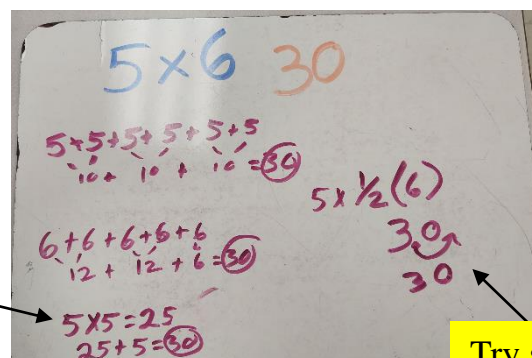 5×6 30
5+5+5+5+5+5
10+ 10 + 10 =30
6+6+6+6+6
12+ 12 + 6 =30
5×5=25
25+5=30
5× 1/2 (6)
30
30
Try